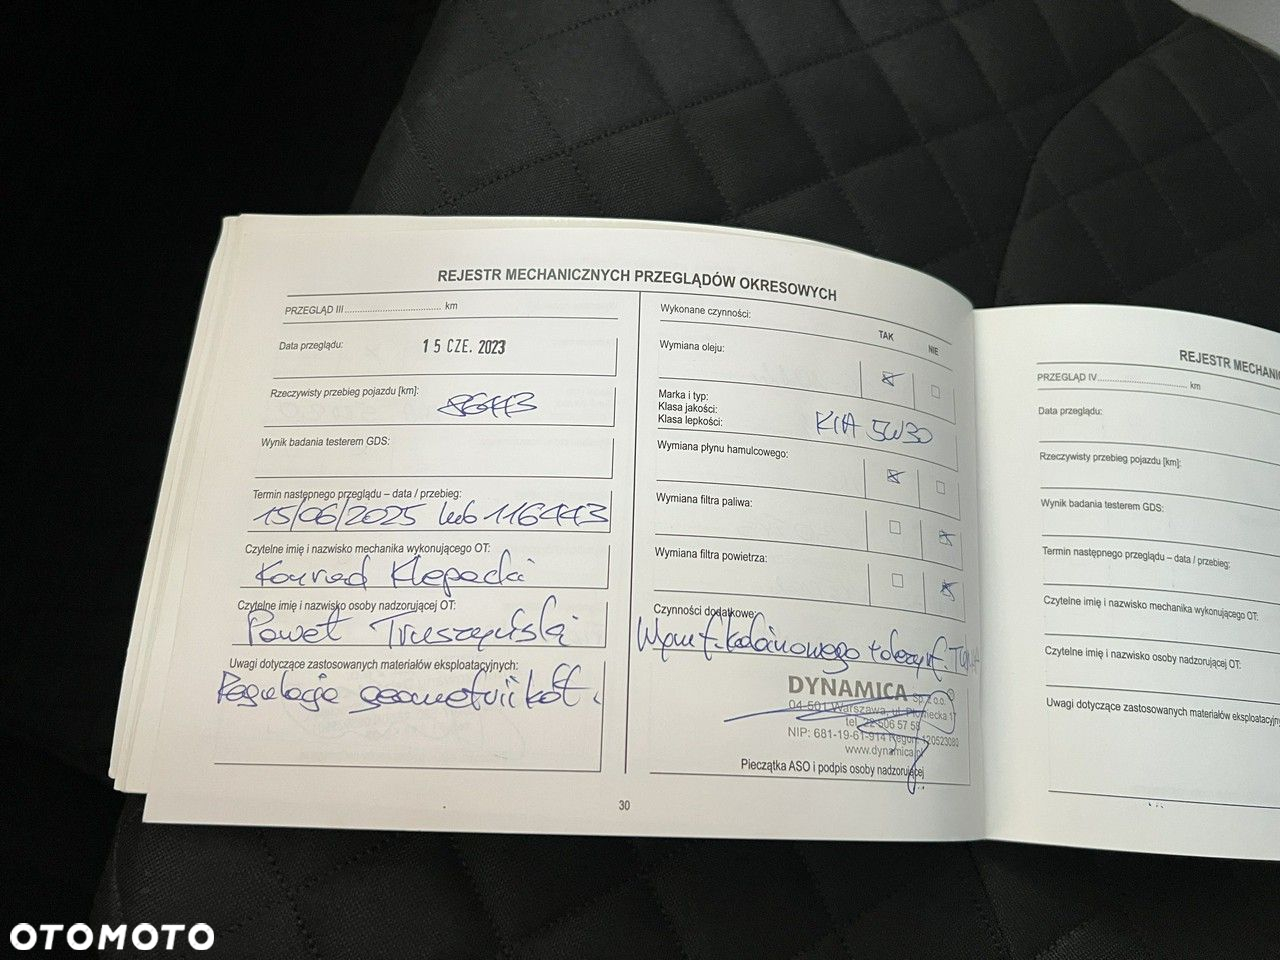 REJESTR MECHANICZNYCH PRZEGLĄDÓW OKRESOWYCH
PRZEGLĄD III.................................... km
Data przeglądu: 15 CZE. 2023
Rzeczywisty przebieg pojazdu [km]: 86443
Wynik badania testerem GDS:
Termin następnego przeglądu – data / przebieg:
15/06/2025 lub 116443
Czytelne imię i nazwisko mechanika wykonującego OT:
Konrad Klepacki
Czytelne imię i nazwisko osoby nadzorującej OT:
Paweł
Uwagi dotyczące zastosowanych materiałów eksploatacyjnych:
Regulacja geometrii kół.
Wykonane czynności:
TAK NIE
Wymiana oleju:
Marka i typ:
Klasa jakości:
Klasa lepkości:
KIA 5W30
Wymiana płynu hamulcowego:
Wymiana filtra paliwa:
Wymiana filtra powietrza:
Czynności dodatkowe:
DYNAMICA Sp. z o.o.
04-501 Warszawa, ul. Płowiecka 1
tel. 22 506 57 5
NIP: 681-19-61-914 Regon 120523080
www.dynamica.pl
Pieczątka ASO i podpis osoby nadzorującej
30
REJESTR
PRZEGLĄD IV.................................... km
Data przeglądu:
Rzeczywisty przebieg pojazdu [km]:
Wynik badania testerem GDS:
Termin następnego przeglądu – data / przebieg:
Czytelne imię i nazwisko mechanika wykonującego OT:
Czytelne imię i nazwisko osoby nadzorującej OT:
Uwagi dotyczące zastosowanych materiałów
OTOMOTO